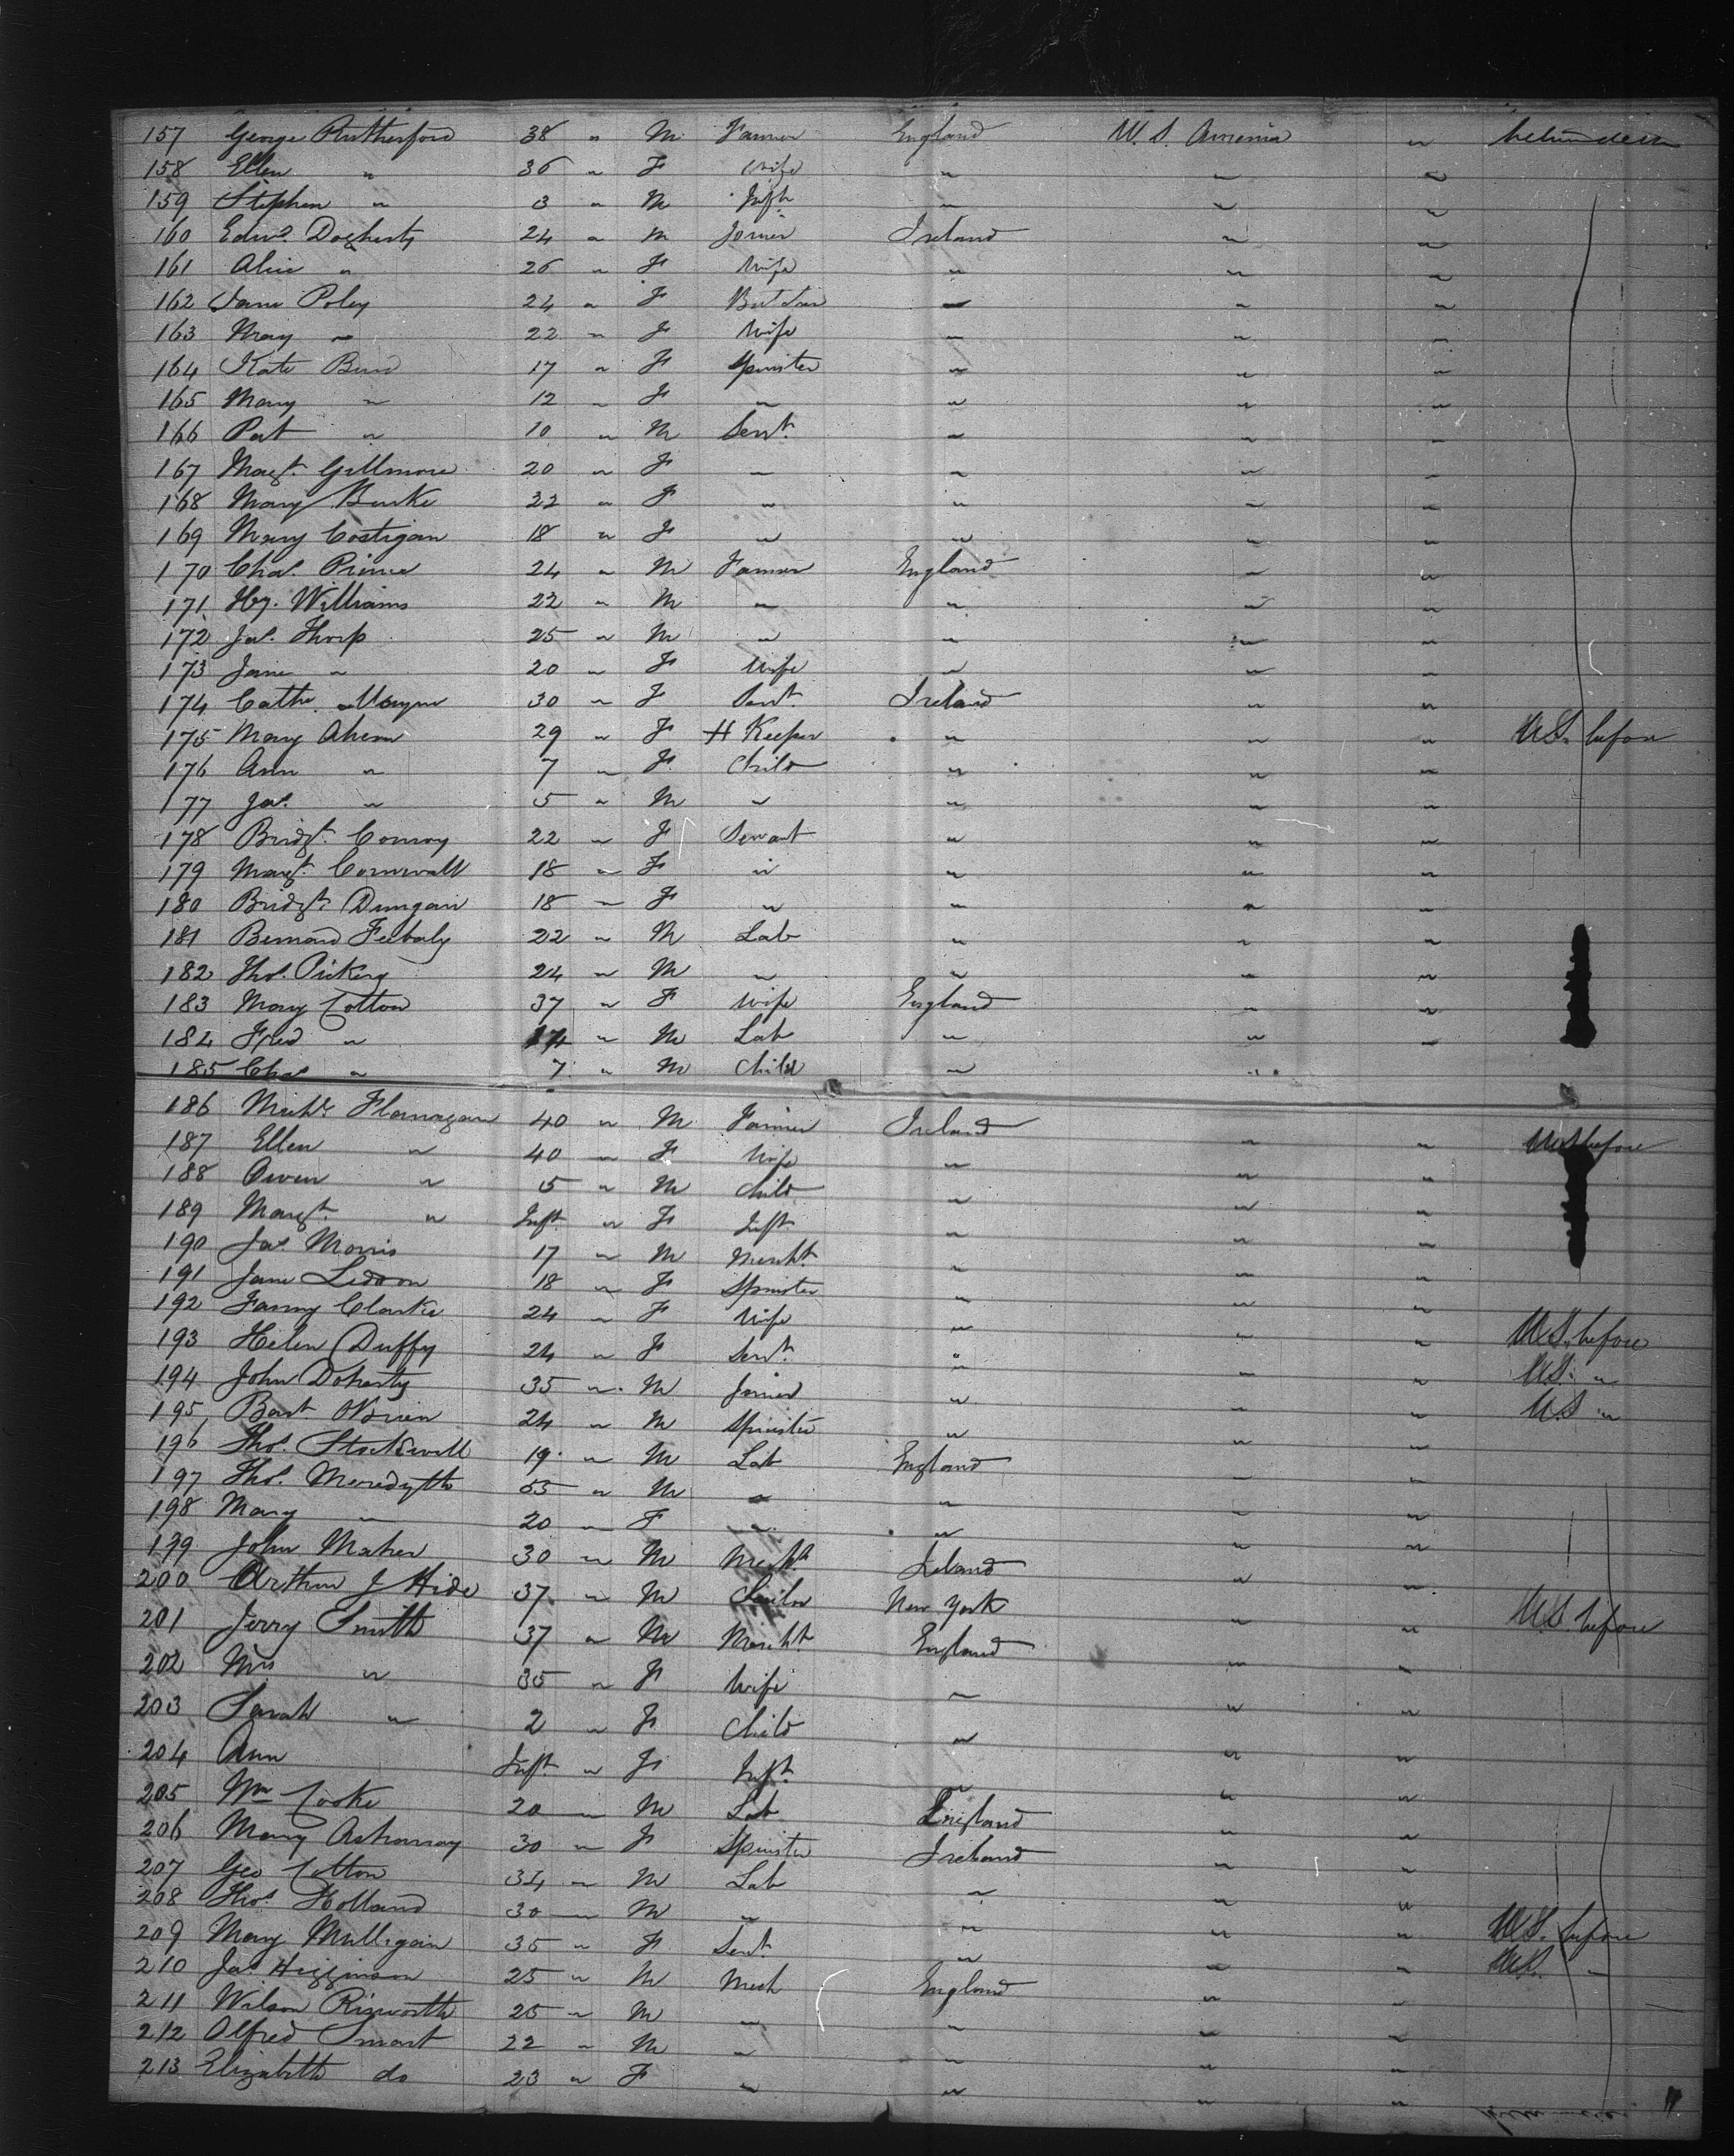 157 George Rutherford 38 " M Farmer England U. S. America "
158 Ellen " 36 " F Wife " " "
159 Stephen " 3 " M Inft " " "
160 Edwd. Dogherty 24 " M Joiner Ireland " "
161 Alice " 26 " F Wife " " "
162 Jane Foley 24 " F " " "
163 Mary " 22 " F Wife " " "
164 Kate 17 " F Spinster " " "
165 Mary " 12 " F " " " "
166 Pat " 10 " M Servt. " " "
167 Margt. Gillmore 20 " F " " " "
168 Mary Burke 22 " F " " " "
169 Mary Costigan 18 " F " " " "
170 Chas. Prince 24 " M Farmer England " "
171 Hy. Williams 22 " M " " " "
172 Jas. Thorp 25 " M " " " "
173 Jane " 20 " F Wife " " "
174 Cathe. Mayne 30 " F Servt. Ireland " "
175 Mary Ahern 29 " F H Keeper " " " U.S. before
176 Ann " 7 " F Child " " "
177 Jas. " 5 " M " " " "
178 Bridgt. Conroy 22 " F Servant " " "
179 Margt. Cornwall 18 " F " " " "
180 Bridgt. Dungan 18 " F " " " "
181 Bernard 22 " M Lab " " "
182 Thos. 24 " M " " " "
183 Mary Cotton 37 " F Wife England " "
184 Fred " " M Lab " " "
185 Chas " 7 " M Child " "
186 Michl. Flanagan 40 " M Farmer Ireland " " U.S. before
187 Ellen " 40 " F Wife " " "
188 Owen " 5 " M Child " " "
189 Margt. " Inft. " F Inft. " " "
190 Jas. Morris 17 " M Mercht. " " "
191 Jane Liddon 18 " F Spinster " " "
192 Fanny Clarke 24 " F Wife " " " U.S. before
193 Helen Duffy 24 " F Servt. " " " U.S. "
194 John Doherty 35 " M Joiner " " " U.S "
195 Bart. OBrien 24 " M Spinster " " "
196 Thos. Stockwell 19 " M Lab England " "
197 Thos. Meredyth 55 " M " " " "
198 Mary " 20 " F " " " "
199 John Maher 30 " M Mercht Ireland " "
200 Arthur J Hide 37 " M New York " " U.S. before
201 Jerry Smith 37 " M Mercht England " "
202 Mrs " 35 " F Wife " " "
203 Sarah " 2 " F Child " " "
204 Ann Inft. " F Inft. " " "
205 Wm Cooke 20 " M Lab England " "
206 Mary 30 " F Spinster Ireland " "
207 Geo Cotton 34 " M Lab " " "
208 Thos. Holland 30 " M " " " " U.S. before
209 Mary Mulligan 35 " F Servt. " " " U.S. "
210 Jas Higginson 25 " M Mech England " "
211 Wilson 25 " M " " " "
212 Alfred Smart 22 " M " " " "
213 Elizabeth do 23 " F " " " "